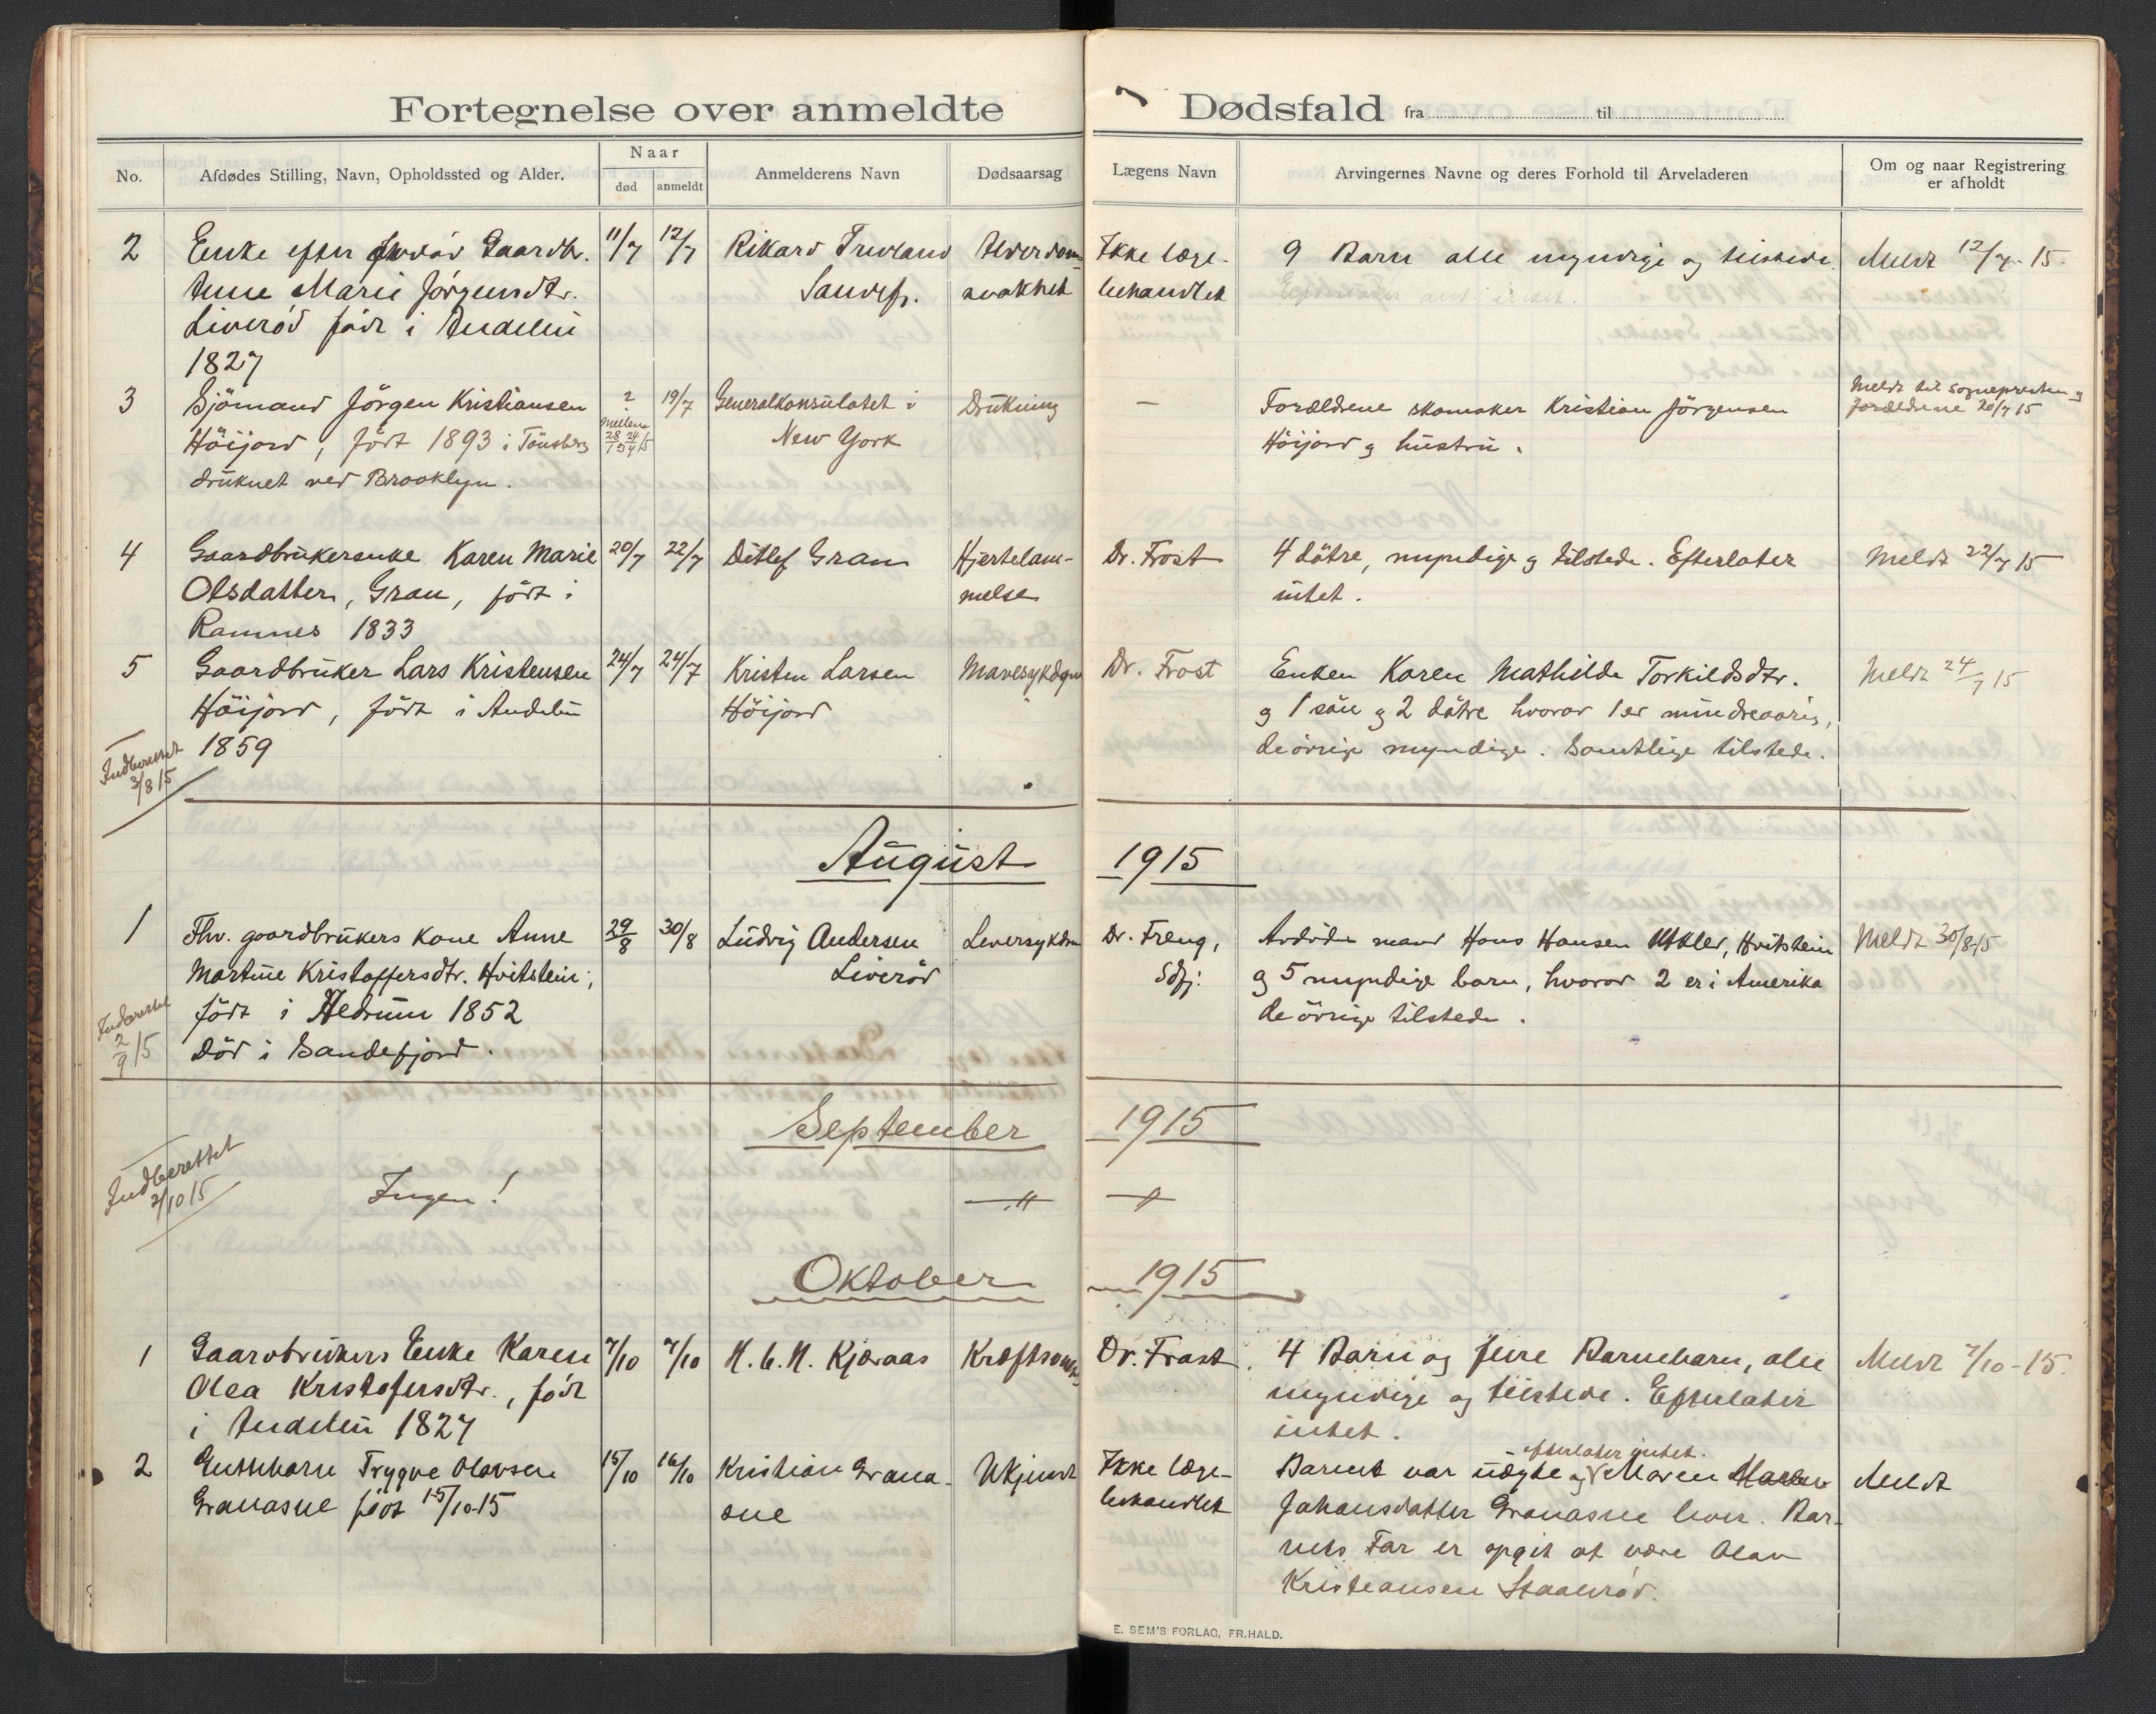 Fortegnelse over anmeldte Dødsfald fra til
No.
Afdødes Stilling, Navn, Opholdssted og Alder.
Naar
død
anmeldt
Anmelderens Navn
Dødsaarsag
Lægens Navn
Arvingernes Navne og deres Forhold til Arveladeren
Om og naar Registrering
er afholdt
2
Enke efter Gaardb.
Anne Marie Jörgensdtr.
Liveröd föd i Andebu
1827
11/7
12/7
Rikard
Sandefj.
Alderdoms
svakhet
Ikke læge-
behandlet
9 Barn alle myndige og tilstede.
Meldt 12/7-15.
3
Sjömand Jörgen Kristiansen
Höijord, född 1893 i Tönsberg
druknet ved Brooklyn.
mellem
19/7
Generalkonsulatet i
New York
Drukning
—
Forældrene skomaker Kristian Jörgensen
Höijord og hustru.
Meldt til sogneprsten og
forældrene 20/7 15
4
Gaardbrukerenke Karen Marie
Olsdatter, Gran, född i
Ramnes 1833
20/7
22/7
Ditlef Gran
Hjertelam-
melse
Dr. Frost
4 dötre, myndige og tilstede. Efterlater
intet.
Meldt 22/7 15
5
Gaardbruker Lars Kristensen
Höijord, född i Andebu
1859
24/7
24/7
Kristen Larsen
Höijord
Mavesykdom
Dr. Frost
Enken Karen Mathilde Torkildsdtr.
og 1 sön og 2 dötre hvorav 1 er mindreaarig,
de övrige myndige. Samtlige tilstede.
Meldt 24/7 15
Indberettet
3/8 15
August 1915
1
Fhv. gaardbrukers kone Anne
Martine Kristoffersdtr. Hvitstein;
född i Hedrum 1852
Död i Sandefjord.
29/8
30/8
Ludvig Andersen
Liveröd
Leversykdom
Dr. Freng,
Sdfj:
Avdödes mand Hans Hansen Hvitstein
og 5 myndige barn, hvorav 2 er i Amerika
de övrige tilstede.
Meldt 30/8 15
Indberettet
2/9 15
September 1915
Indberettet
2/10 15
Ingen!
—„—
—„—
Oktober 1915
1
Gaardbrukers Enke Karen
Olea Kristofersdtr., född
i Andebu 1827
7/10
7/10
Kjæraas
Dr. Frost.
4 Barn og flere Barnebarn, alle
myndige og tilstede. Efterlater
intet.
Meldt 7/10-15.
2
Guttebarn Trygve Olavsen
Granasne född 15/10-15
15/10
16/10
Kristian Grana-
sne
Ukjendt
Ikke læge-
behandlet
efterlater intet.
Barnet var uægte og Moren Maren
Johansdatter Granasne lever. Bar-
nets Far er opgit at være Olav
Kristiansen
Meldt
E. SEM'S FORLAG, FR.HALD.